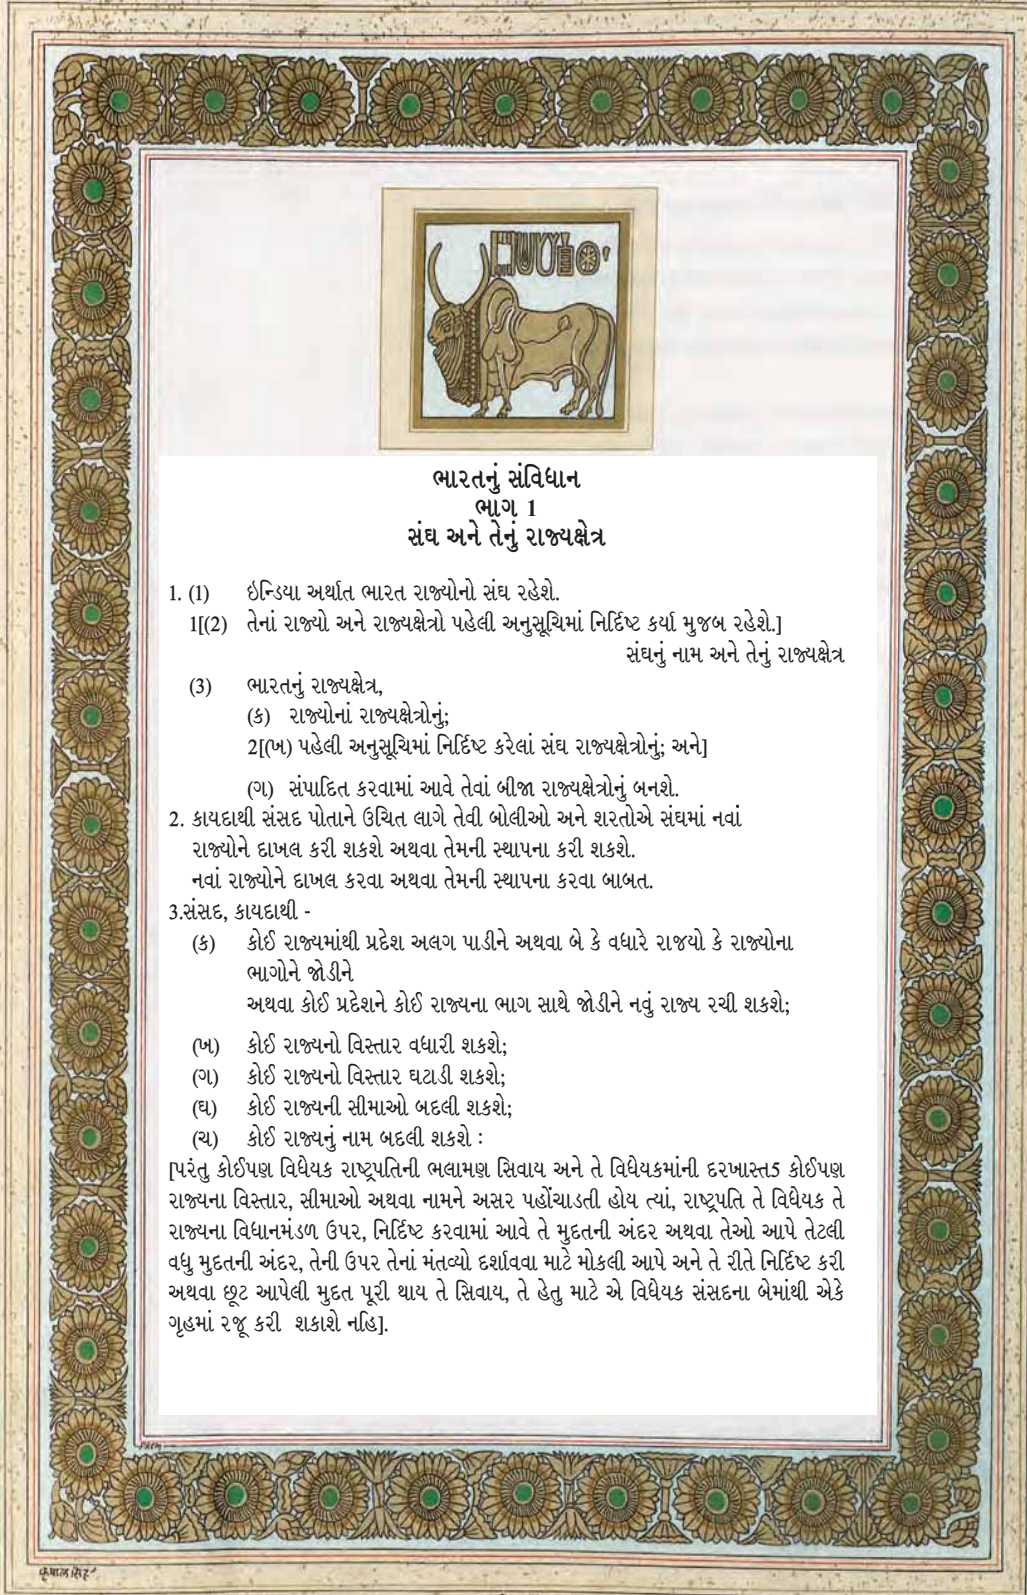 ભારતનું સંવિધાન
ભાગ 1
સંઘ અને તેનું રાજ્યક્ષેત્ર
1. (1) ઇન્ડિયા અર્થાત ભારત રાજ્યોનો સંઘ રહેશે.
1[(2) તેનાં રાજ્યો અને રાજ્યક્ષેત્રો પહેલી અનુસૂચિમાં નિર્દિષ્ટ કર્યા મુજબ રહેશે.]
સંઘનું નામ અને તેનું રાજ્યક્ષેત્ર
(3) ભારતનું રાજ્યક્ષેત્ર,
(ક) રાજ્યોનાં રાજ્યક્ષેત્રોનું;
2[(ખ) પહેલી અનુસૂચિમાં નિર્દિષ્ટ કરેલાં સંઘ રાજ્યક્ષેત્રોનું; અને]
(ગ) સંપાદિત કરવામાં આવે તેવાં બીજા રાજ્યક્ષેત્રોનું બનશે.
2. કાયદાથી સંસદ પોતાને ઉચિત લાગે તેવી બોલીઓ અને શરતોએ સંઘમાં નવાં
રાજ્યોને દાખલ કરી શકશે અથવા તેમની સ્થાપના કરી શકશે.
નવાં રાજ્યોને દાખલ કરવા અથવા તેમની સ્થાપના કરવા બાબત.
3.સંસદ, કાયદાથી -
(ક) કોઈ રાજ્યમાંથી પ્રદેશ અલગ પાડીને અથવા બે કે વધારે રાજયો કે રાજ્યોના
ભાગોને જોડીને
અથવા કોઈ પ્રદેશને કોઈ રાજ્યના ભાગ સાથે જોડીને નવું રાજ્ય રચી શકશે;
(ખ) કોઈ રાજ્યનો વિસ્તાર વધારી શકશે;
(ગ) કોઈ રાજ્યનો વિસ્તાર ઘટાડી શકશે;
(ઘ) કોઈ રાજ્યની સીમાઓ બદલી શકશે;
(ચ) કોઈ રાજ્યનું નામ બદલી શકશે :
[પરંતુ કોઈપણ વિધેયક રાષ્ટ્રપતિની ભલામણ સિવાય અને તે વિધેયકમાંની દરખાસ્ત5 કોઈપણ
રાજ્યના વિસ્તાર, સીમાઓ અથવા નામને અસર પહોંચાડતી હોય ત્યાં, રાષ્ટ્રપતિ તે વિધેયક તે
રાજ્યના વિધાનમંડળ ઉપર, નિર્દિષ્ટ કરવામાં આવે તે મુદતની અંદર અથવા તેઓ આપે તેટલી
વધુ મુદતની અંદર, તેની ઉપર તેનાં મંતવ્યો દર્શાવવા માટે મોકલી આપે અને તે રીતે નિર્દિષ્ટ કરી
અથવા છૂટ આપેલી મુદત પૂરી થાય તે સિવાય, તે હેતુ માટે એ વિધેયક સંસદના બેમાંથી એકે
ગૃહમાં રજૂ કરી શકાશે નહિ].